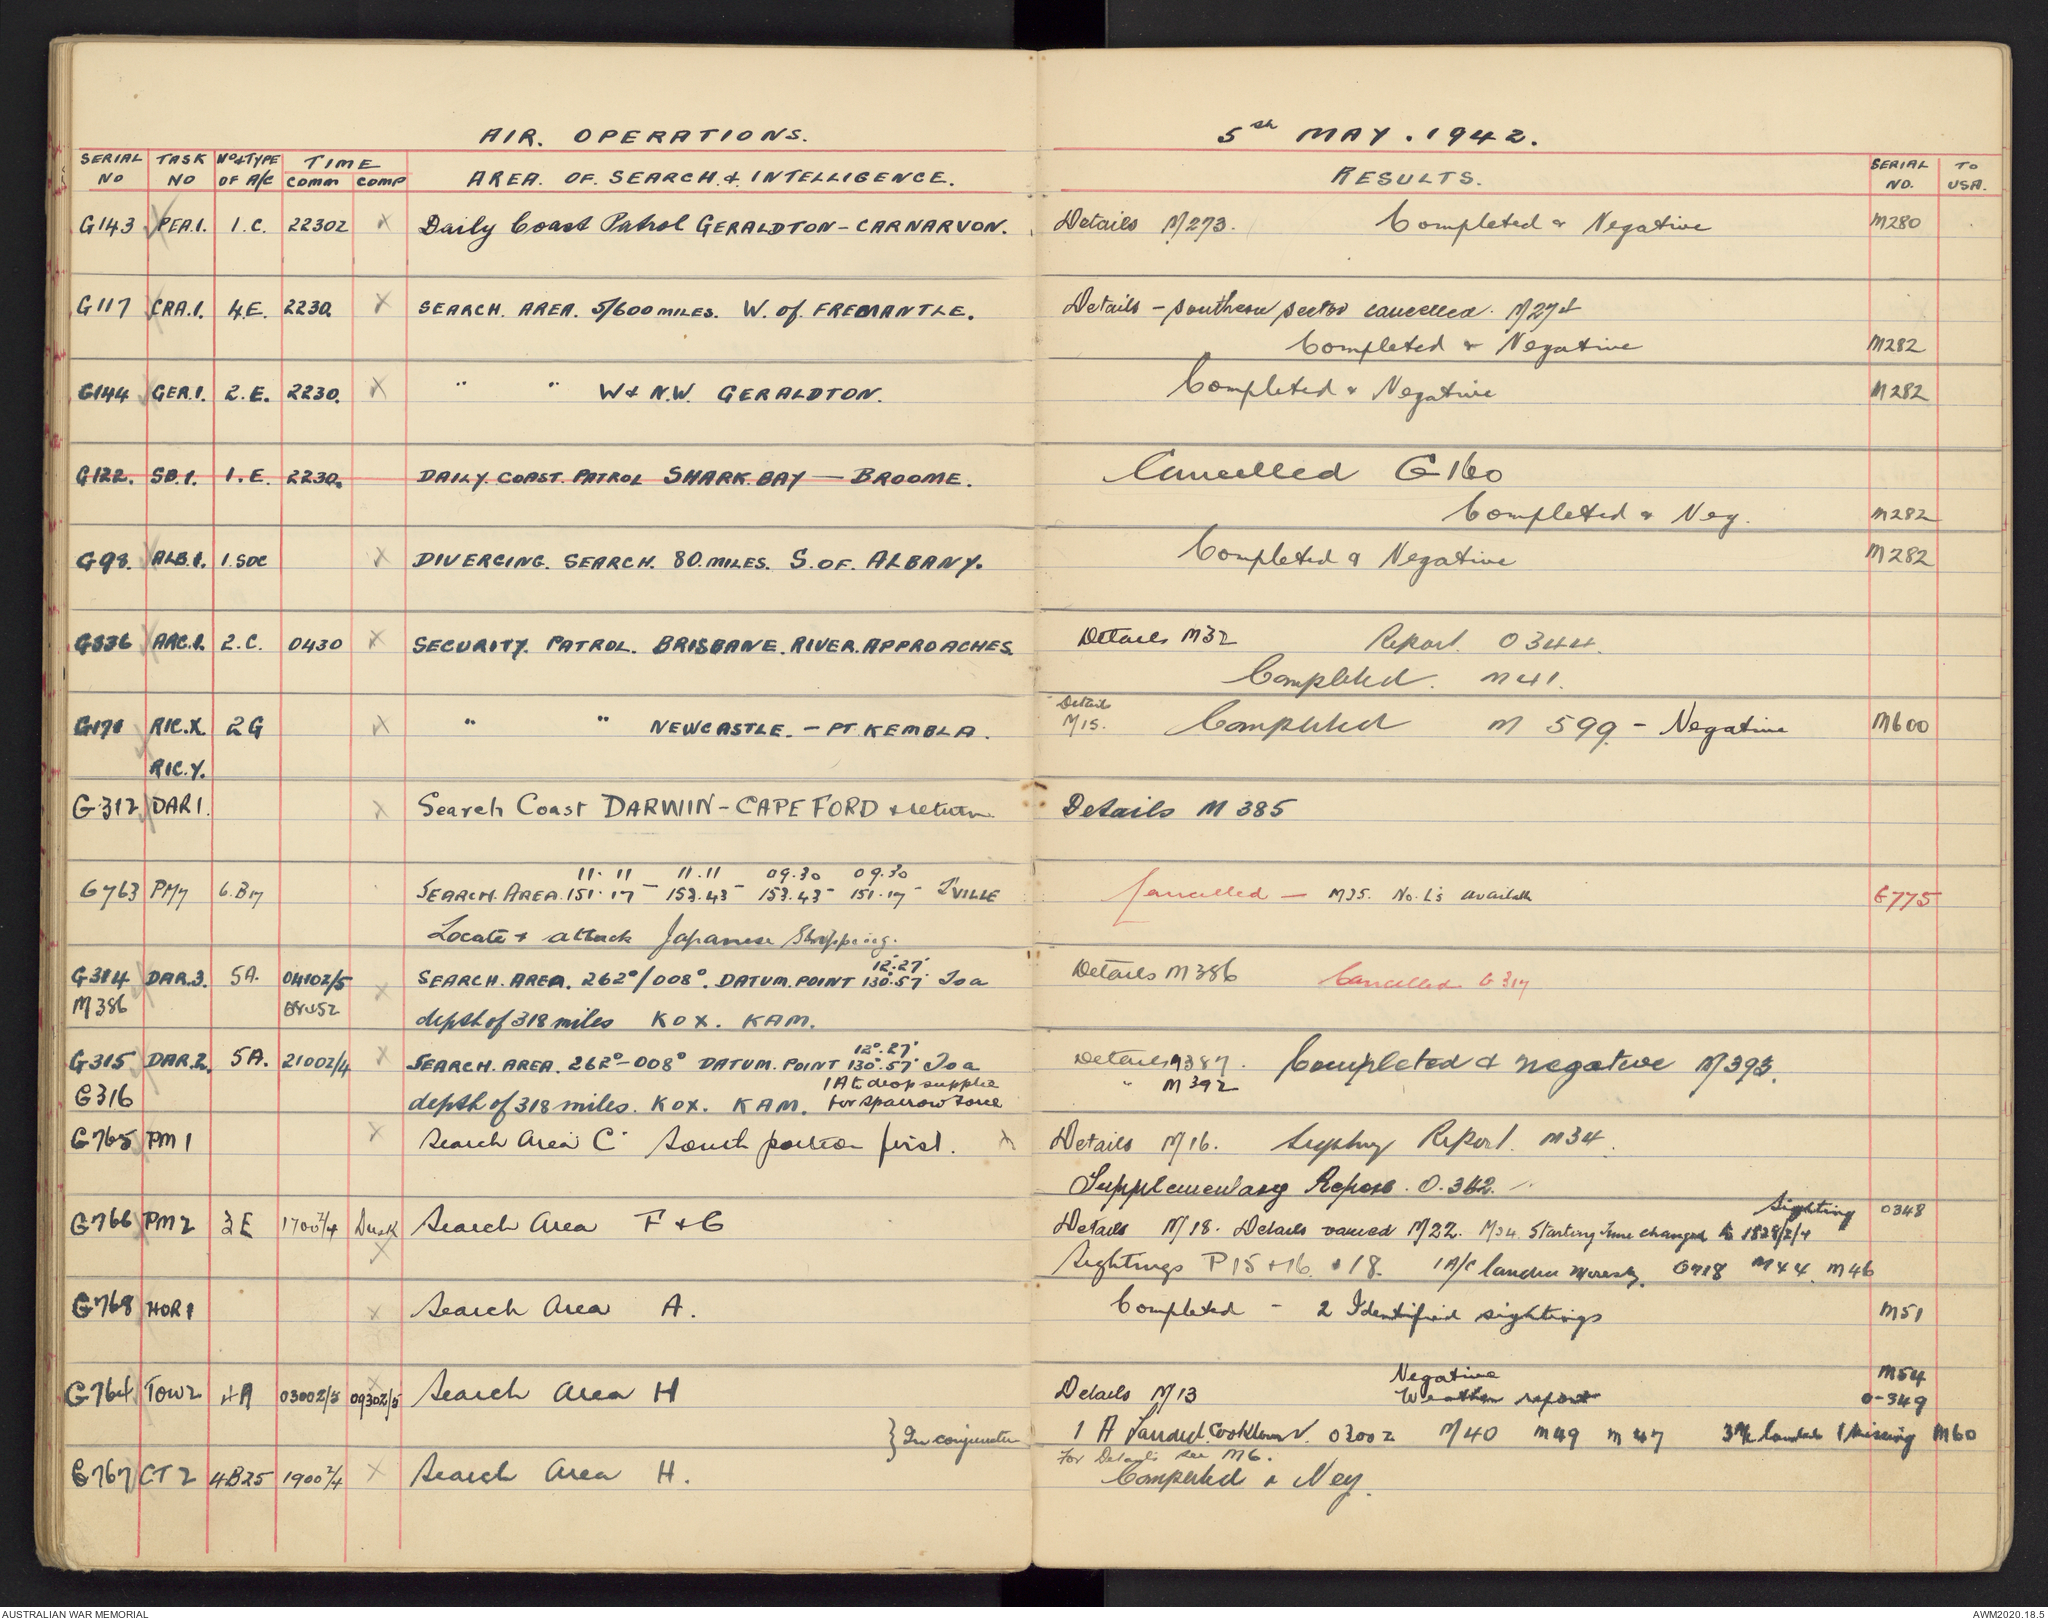 AIR. OPERATIONS.
5th MAY. 1942.
SERIAL NO TASK NO No & TYPE OF A/C TIME COMM COMP AREA. OF. SEARCH. & INTELLIGENCE.
RESULTS. SERIAL NO. TO USA.
G143 PEA.1. 1.C. 2230Z X Daily Coast Patrol GERALDTON - CARNARVON.
Details M273. Completed & Negative M280
G117 CRA.1. 4.E. 2230. X SEARCH. AREA. 5/600 MILES. W. of. FREMANTLE.
Details - southern sector cancelled. M274
Completed & Negative M282
G144 GER.1. 2.E. 2230. X " " W & N.W. GERALDTON.
Completed & Negative M282
G122. SB.1. 1.E. 2230. DAILY. COAST. PATROL SHARK. BAY — BROOME.
Cancelled G160
Completed & Neg. M282
G98. ALB.1. 1.SOC X DIVERGING. SEARCH. 80. MILES. S. OF. ALBANY.
Completed & Negative M282
G336 ARC.1. 2.C. 0430 X SECURITY. PATROL. BRISBANE. RIVER. APPROACHES.
Details M32 Report. O344.
Completed. M41.
G171 RIC.X. 2G X " " NEWCASTLE. - PT. KEMBLA.
RIC.Y.
Details
M15. Completed M 599 - Negative M600
G312 DAR1. X Search Coast DARWIN - CAPE FORD & return
Details M 385
11.11 11.11 09.30 09.30
G763 PM7 6.B17 SEARCH. AREA. 151.17 - 153.43 - 153.43 - 151.17 - T'VILLE
Locate & attack Japanese Shipping.
Cancelled - M35. No. L's available G775
12°.27'
G314 DAR.3. 5A. 0410Z/5 X SEARCH. AREA. 262°/008°. DATUM. POINT 130°.57' To a
M386 depth of 318 miles KOX. KAM.
Details M386 Cancelled G317
12°.27'
G315 DAR.2. 5A. 2100Z/4 X SEARCH. AREA. 262°-008° DATUM. POINT 130°.57' To a
1 A to drop supplies
G316 depth of 318 miles. KOX. KAM. for Sparrow Force
Details M387. Completed & negative M393.
" M392
G765 PM1 X Search Area C South portion first. X
Details M16. Report. M34.
Supplementary Report. O.362.
G766 PM2 3E 1700Z/4 Dusk X Search Area F & G
Sighting O348
Details M18. Details varied M22. M34 Starting Time changed to 1828/Z/4
Sightings P15 + 16. + 18. 1 A/C landed Moresby. G718 M44. M46
G768 HOR1 X Search Area A.
Completed - 2 Identified sightings M51
G764 TOW2 4A 0300Z/5 0930Z/5 X Search Area H
Negative M54
Details M13 Weather report O-349
} In conjunction
1 A Landed. Cooktown. 0300Z M40 M49 M47 3 A/c landed 1 missing M60
G767 CT2 4B25 1900Z/4 X Search Area H.
For Details see M6.
Completed & Neg.
AUSTRALIAN WAR MEMORIAL
AWM2020.18.5